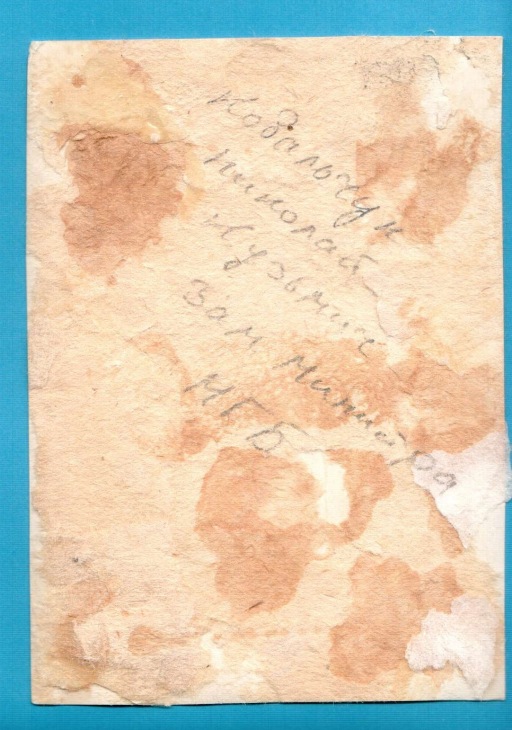 Ковальчук
Николай
Кузьмич
Зам Министра
МГБ